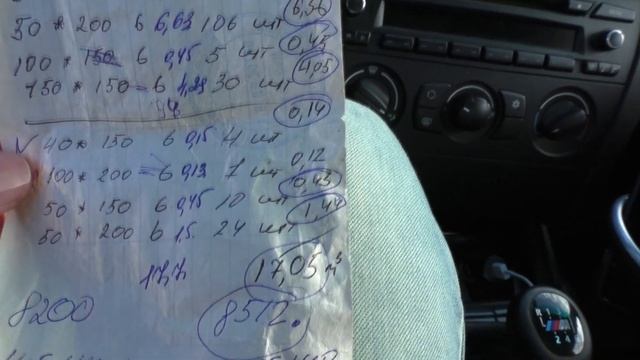 50 * 200 6 6,63 106 шт 6,36
100 * 150 6 0,45 5 шт 0,45
150 * 150 = 6 1,21 30 шт 4,05
0,14
V 40 * 150 6 0,15 4 шт
100 * 200 = 6 0,13 1 шт 0,12
50 * 150 6 0,45 10 шт 0,45
50 * 200 6 1,5 24 шт 1,44
17,7 17,05 м³
8200 8512.
R 1
L M
2 4